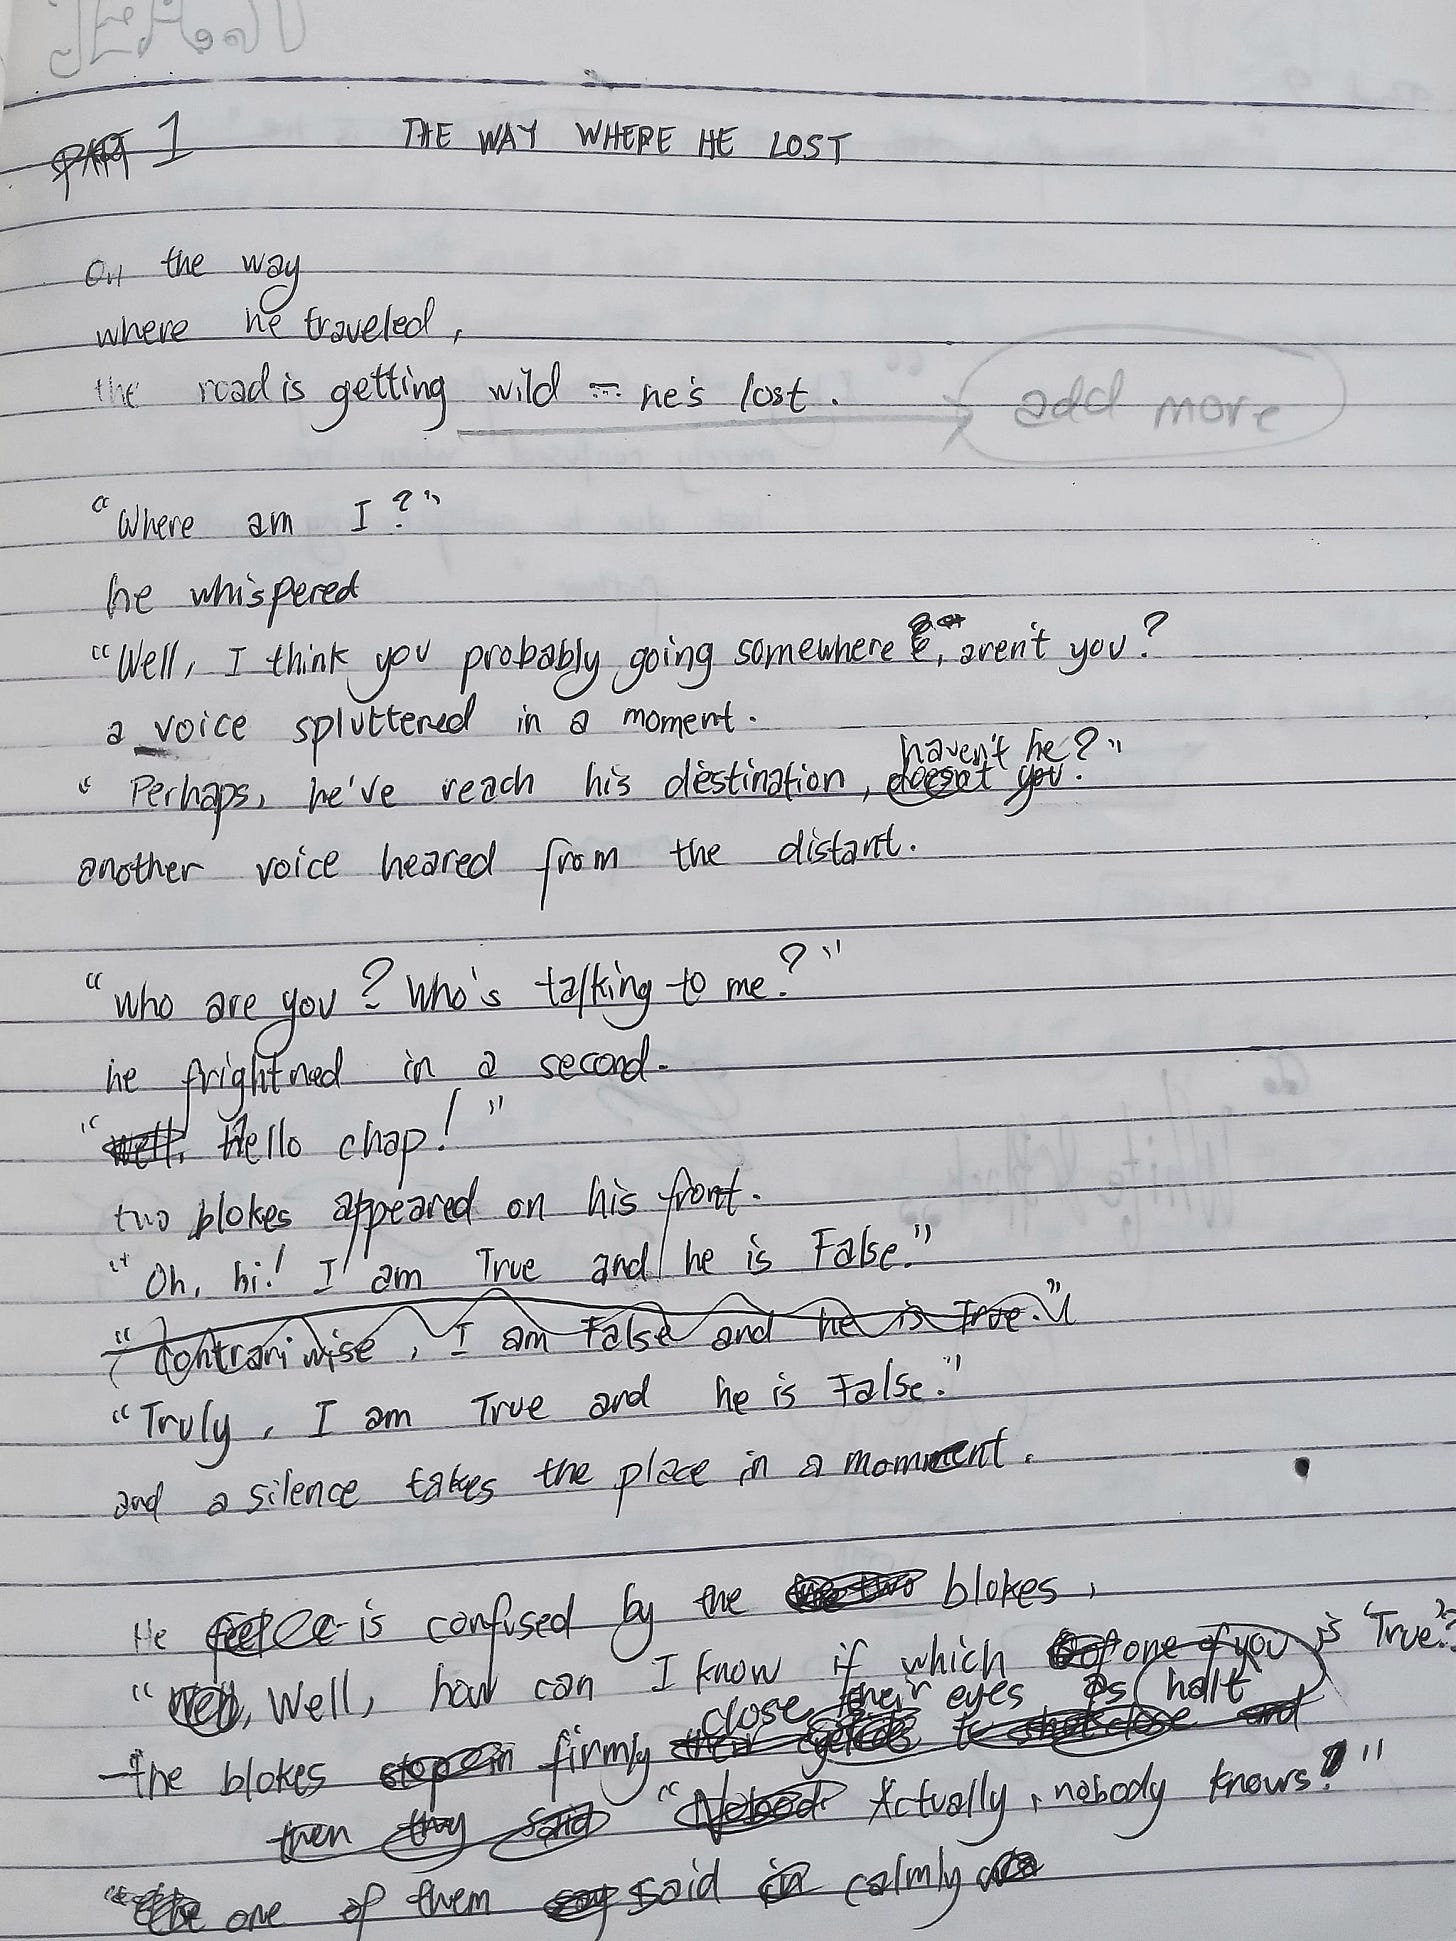 PART 1 THE WAY WHERE HE LOST
on the way
where he traveled,
the road is getting wild — he's lost. add more
"Where am I?"
he whispered
"Well, I think you probably going somewhere, aren't you?
a voice spluttered in a moment.
haven't he?"
"Perhaps, he've reach his destination, doesn't you.
another voice heared from the distant.
"Who are you? Who's talking to me?"
he frightned in a second.
"well, Hello chap!"
two blokes appeared on his front.
"Oh, hi! I am True and he is False."
"Contrariwise, I am False and he is True."
"Truly, I am True and he is False."
and a silence takes the place in a momment.
He is confused by the the two blokes,
"Well, Well, how can I know if which one of you is 'True?"
close their eyes as halt
the blokes stop in firmly their to and
then they said "Nobody Actually, nobody knows!"
"the one of them say said in calmly